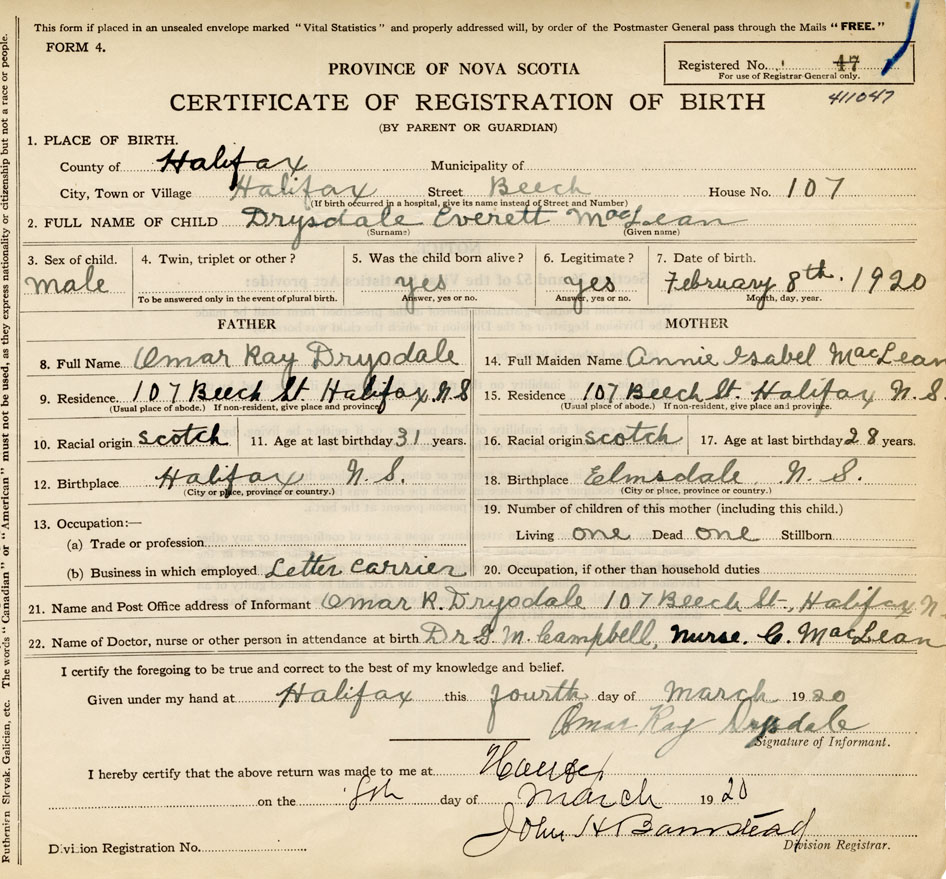 This form if placed in an unsealed envelope marked "Vital Statistics" and properly addressed will, by order of the Postmaster General pass through the Mails "FREE."
FORM 4.
Registered No. 47
For use of Registrar General only.
411047
PROVINCE OF NOVA SCOTIA
CERTIFICATE OF REGISTRATION OF BIRTH
(BY PARENT OR GUARDIAN)
1. PLACE OF BIRTH.
County of Halifax Municipality of
City, Town or Village Halifax Street Beech House No. 107
(If birth occurred in a hospital, give its name instead of Street and Number)
2. FULL NAME OF CHILD Drysdale Everett MacLean
(Surname) (Given name)
3. Sex of child. 4. Twin, triplet or other? 5. Was the child born alive? 6. Legitimate? 7. Date of birth.
male yes yes February 8th. 1920
To be answered only in the event of plural birth. Answer, yes or no. Answer, yes or no. Month, day, year.
FATHER MOTHER
8. Full Name Omar Ray Drysdale 14. Full Maiden Name Annie Isabel MacLean
9. Residence. 107 Beech St. Halifax, N.S 15. Residence 107 Beech St. Halifax N.S.
(Usual place of abode.) If non-resident, give place and province. (Usual place of abode.) If non-resident, give place and province.
10. Racial origin scotch 11. Age at last birthday 31 years. 16. Racial origin scotch 17. Age at last birthday 28 years.
12. Birthplace Halifax N.S. 18. Birthplace Elmsdale, N.S.
(City or place, province or country.) (City or place, province or country.)
13. Occupation:— 19. Number of children of this mother (including this child.)
(a) Trade or profession Living one Dead one Stillborn
(b) Business in which employed Letter carrier 20. Occupation, if other than household duties
21. Name and Post Office address of Informant Omar R. Drysdale 107 Beech St., Halifax N
22. Name of Doctor, nurse or other person in attendance at birth Dr. M. Campbell, Nurse. C. MacLean
I certify the foregoing to be true and correct to the best of my knowledge and belief.
Given under my hand at Halifax this fourth day of March 1920
Omar Ray Drysdale
Signature of Informant.
I hereby certify that the above return was made to me at
on the 8th day of March 1920
John H Barnstead
Division Registration No. Division Registrar.
Ruthenian Slovak, Galician, etc. The words "Canadian" or "American" must not be used, as they express nationality or citizenship but not a race or people.